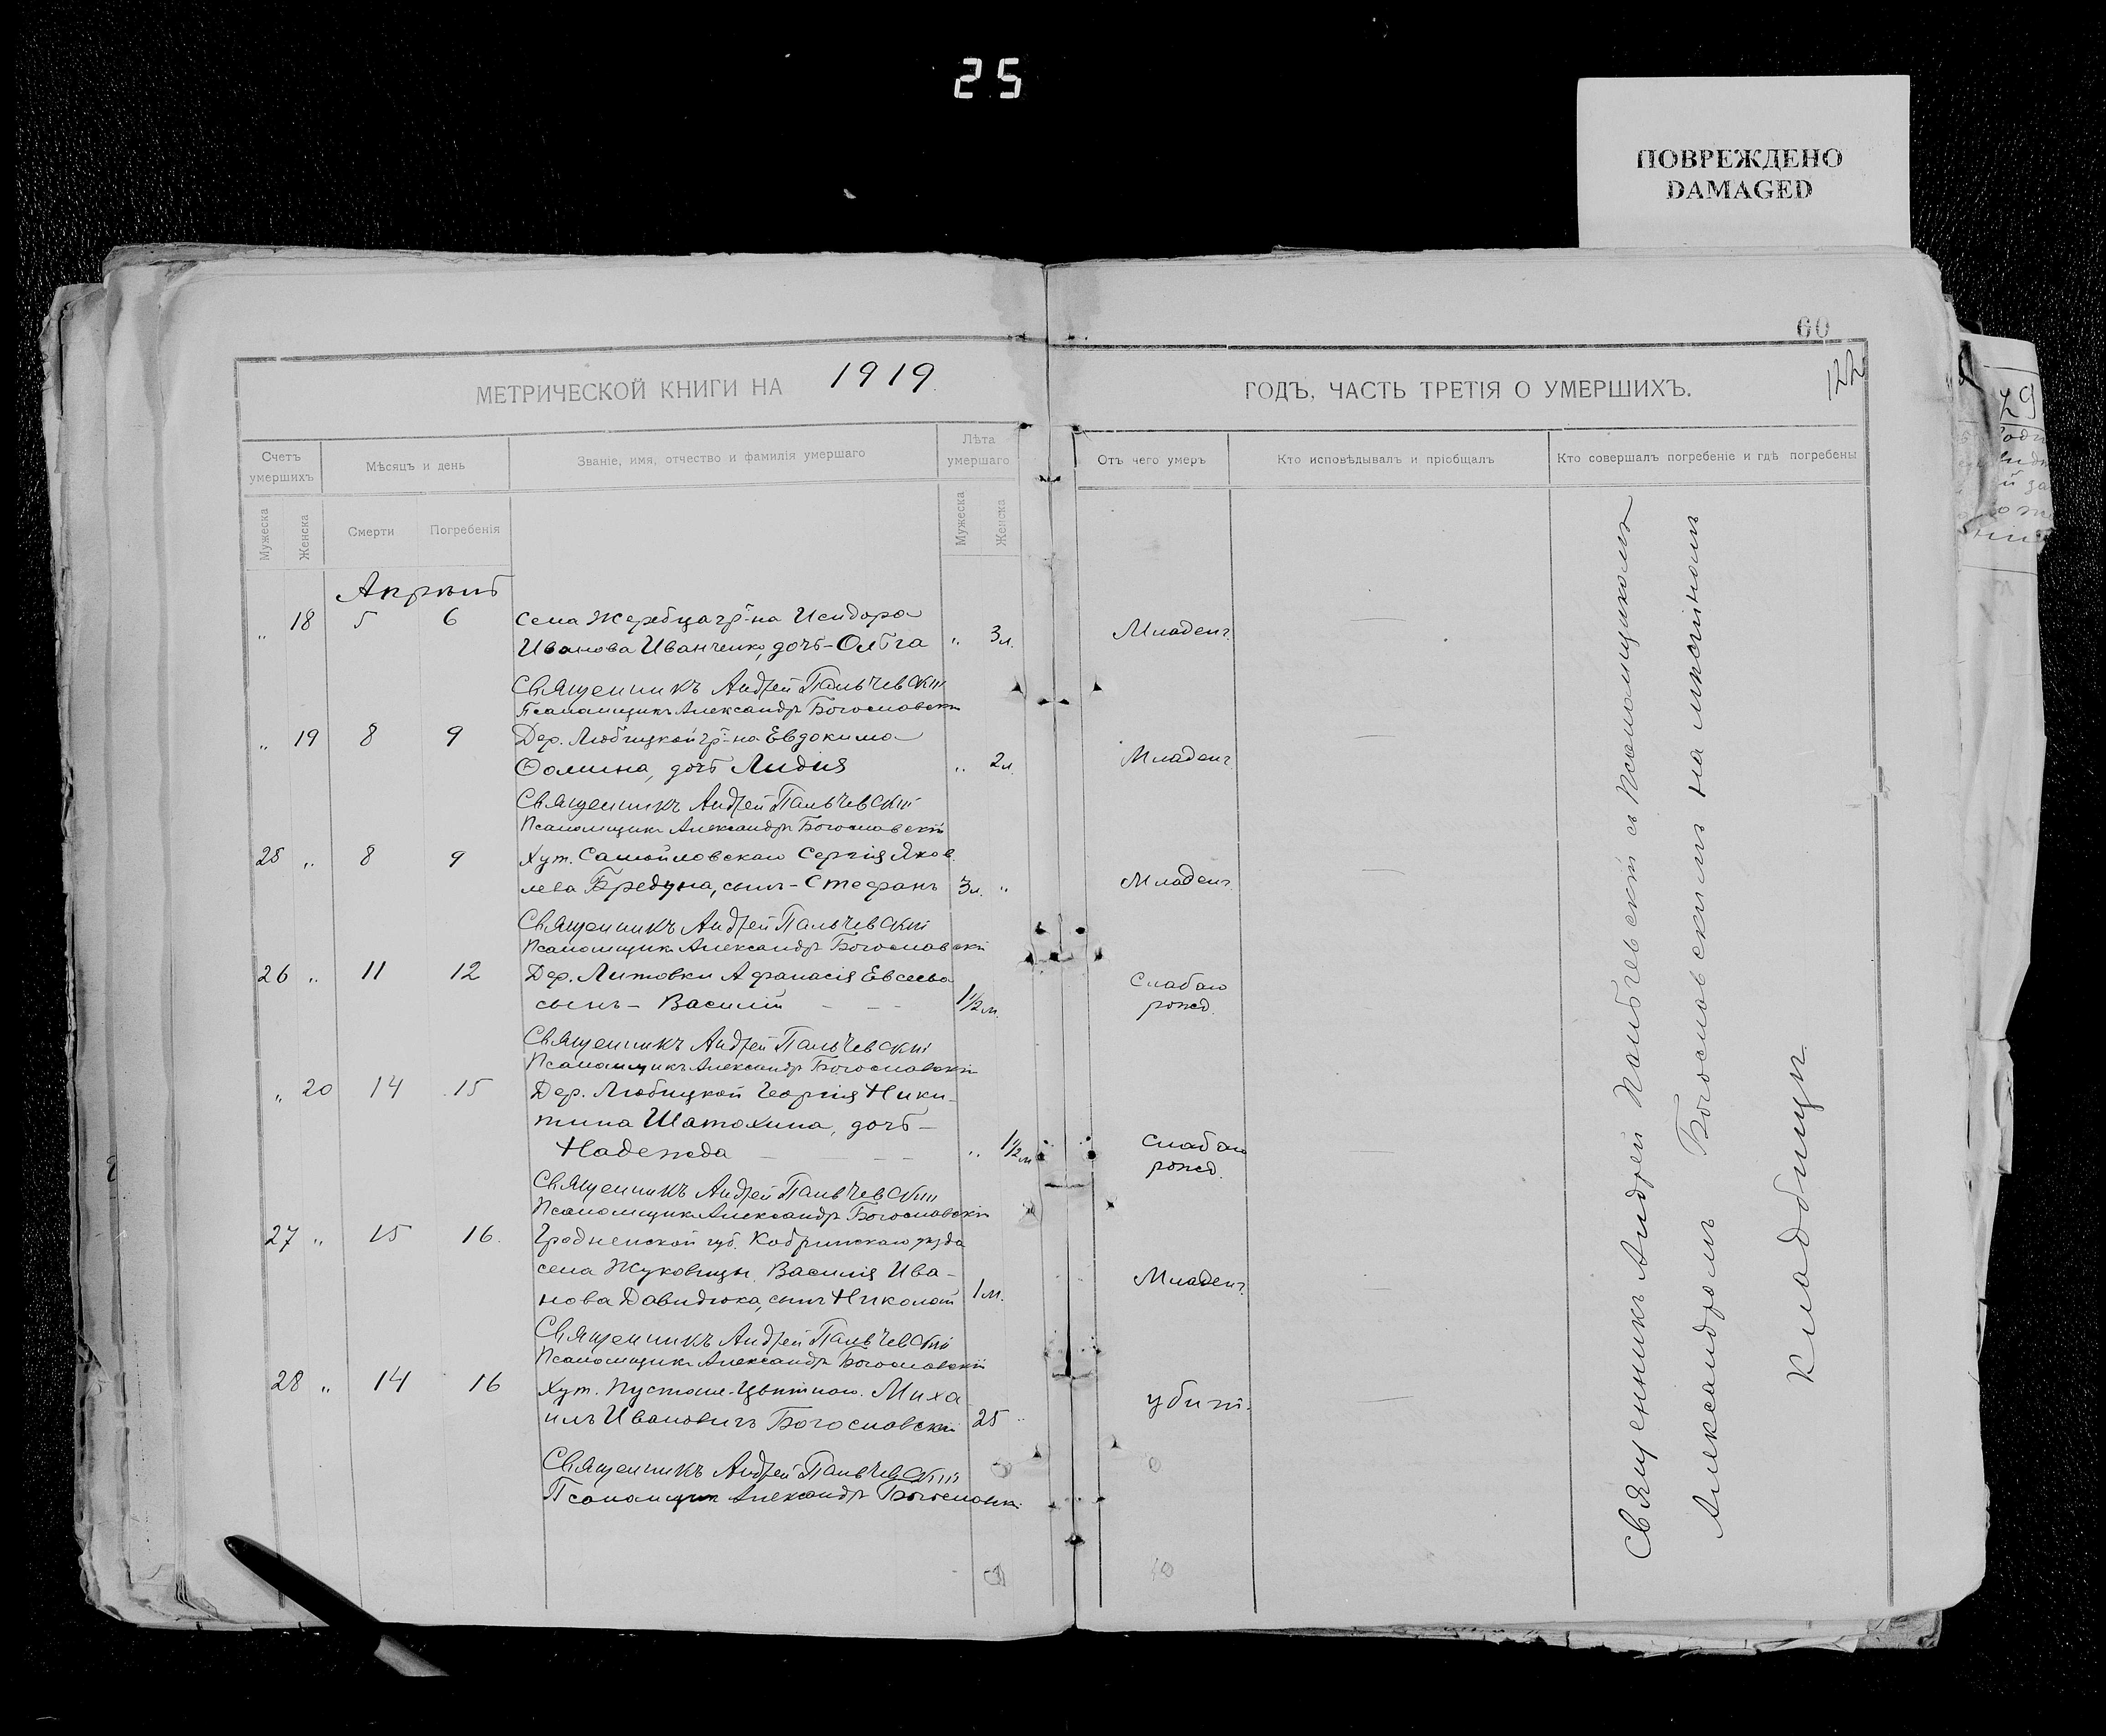 25
ПОВРЕЖДЕНО
DAMAGED
60
122
МЕТРИЧЕСКОЙ КНИГИ НА 1919
ГОДЪ, ЧАСТЬ ТРЕТІЯ О УМЕРШИХЪ.
Счетъ умершихъ
Мѣсяцъ и день
Званіе, имя, отчество и фамилія умершаго
Лѣта умершаго
Отъ чего умеръ
Кто исповѣдывалъ и пріобщалъ
Кто совершалъ погребеніе и гдѣ погребены
Мужеска
Женска
Смерти
Погребенія
Мужеска
Женска
Апрѣль
„ 18 5 6 Села Жеребца гр-на Исидора
Иванова Иванченко, дочь - Ольга „ 3 л. Младенч.
Священникъ Андрей Пальчевскій
Псаломщикъ Александръ Богословскій
„ 19 8 9 Дер. Любицкой гр-на Евдокима
Ѳомина, дочь Лидия „ 2 л. Младенч.
Священникъ Андрей Пальчевскій
Псаломщикъ Александръ Богословскій
25 „ 8 9 Хут. Самойловскаго Сергія Яков
лева Бредуна, сынъ - Стефанъ 3 л. „ Младенч.
Священникъ Андрей Пальчевскій
Псаломщикъ Александръ Богословскій
26 „ 11 12 Дер. Литовки Афанасія Евсеева
сынъ - Василій 1½ м. Слабаго
рожд.
Священникъ Андрей Пальчевскій
Псаломщикъ Александръ Богословскій
„ 20 14 15 Дер. Любицкой Георгія Ники-
тина Шатохина, дочь -
Надежда „ 1½ м Слабаго
рожд.
Священникъ Андрей Пальчевскій
Псаломщикъ Александръ Богословскій
27 „ 15 16. Гродненской губ. Кобринскаго уѣзда
села Жуковцы Василія Ива-
нова Давидюка, сынъ Николай 1 м. Младенч.
Священникъ Андрей Пальчевскій
Псаломщикъ Александръ Богословскій
28 „ 14 16 Хут. Миха
илъ Ивановичъ Богословскій 25 „ убитъ.
Священникъ Андрей Пальчевскій
Псаломщикъ Александръ Богословскій
Священникъ Андрей Пальчевскій съ Псаломщикомъ
Александромъ Богословскимъ на мѣстномъ
кладбищѣ.